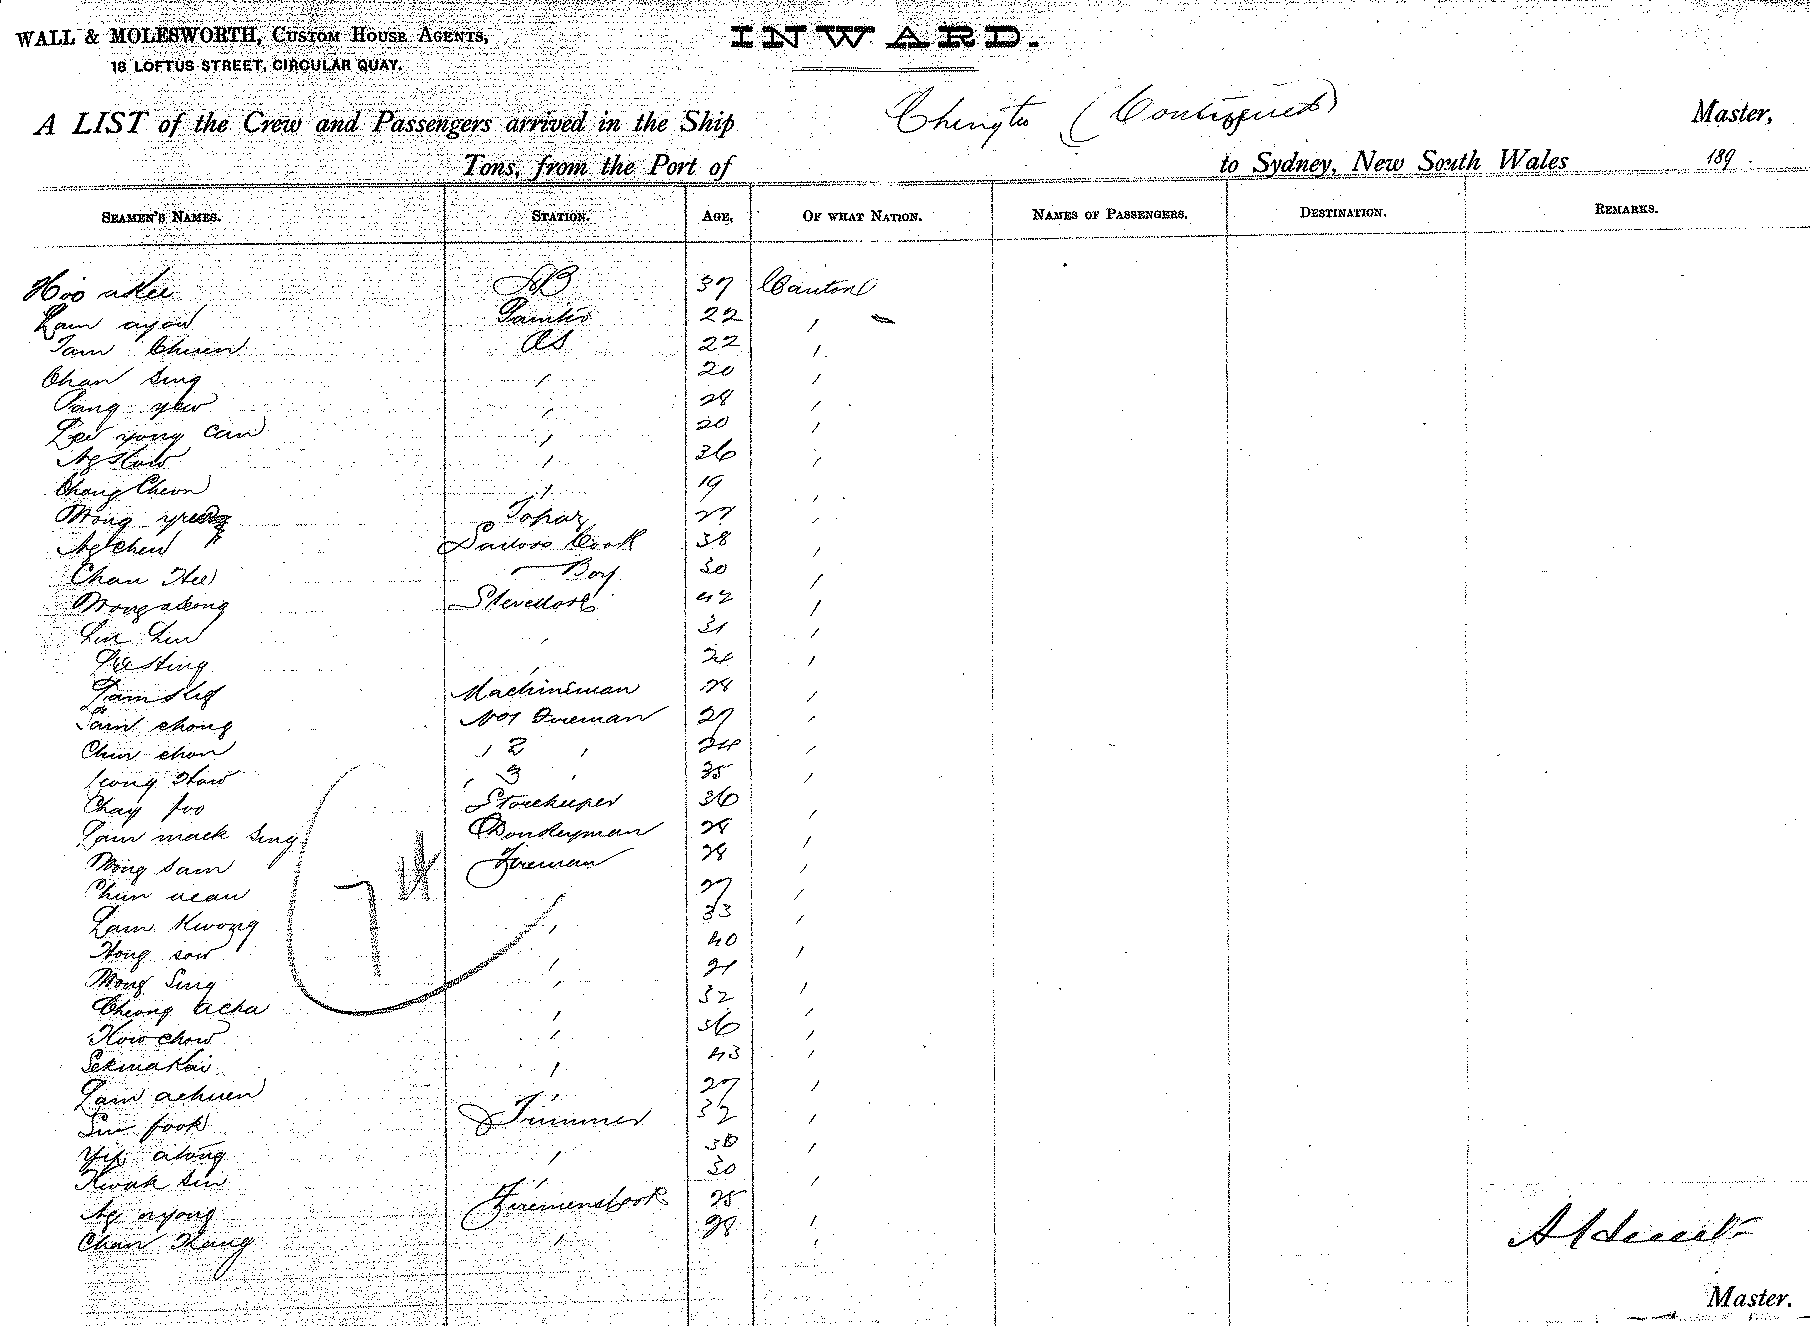 WALL & MOLESWORTH, CUSTOM HOUSE AGENTS,
18 LOFTUS STREET, CIRCULAR QUAY.
INWARD.
A LIST of the Crew and Passengers arrived in the Ship Chingtu (Continued) Master,
Tons, from the Port of to Sydney, New South Wales 189 .
SEAMEN'S NAMES. STATION. AGE, OF WHAT NATION. NAMES OF PASSENGERS. DESTINATION. REMARKS.
Hoo aKee AB 37 Canton
Lam ayou 22 "
Tam Chuen OS 22 "
Chan Sing " 20 "
Pang yew " 28 "
Lee yong Can " 20 "
Ng How " 36 "
Chong Cheon " 19 "
Wong Topaz 27 "
Ng chew Sailors Cook 38 "
Chan Hee Boy 30 "
Wong Stevedore 42 "
Lin Lin " 31 "
Lee Hing " 24 "
Lam Machineman 28 "
Tam chong No1 Fireman 27 "
Chin chon " 2 " 24 "
How " 3 " 35 "
Chay foo Storekeeper 36 "
Lam mack Sing Donkeyman 28 "
Wong Sam Fireman 28 "
Chun 27 "
Lam Kwong " 33 "
Hong sow 40 "
Wong Sing " 21 "
Cheong acha " 32 "
How chow " 36 "
Sekmakai " 43 "
Lam achuen " 27 "
Sin fook Trimmer 32 "
Yip " 30 "
Kwok Sin " 30 "
Ng ayong Firemens Cook 25 "
Chan Kang " 28 "
7
Master.